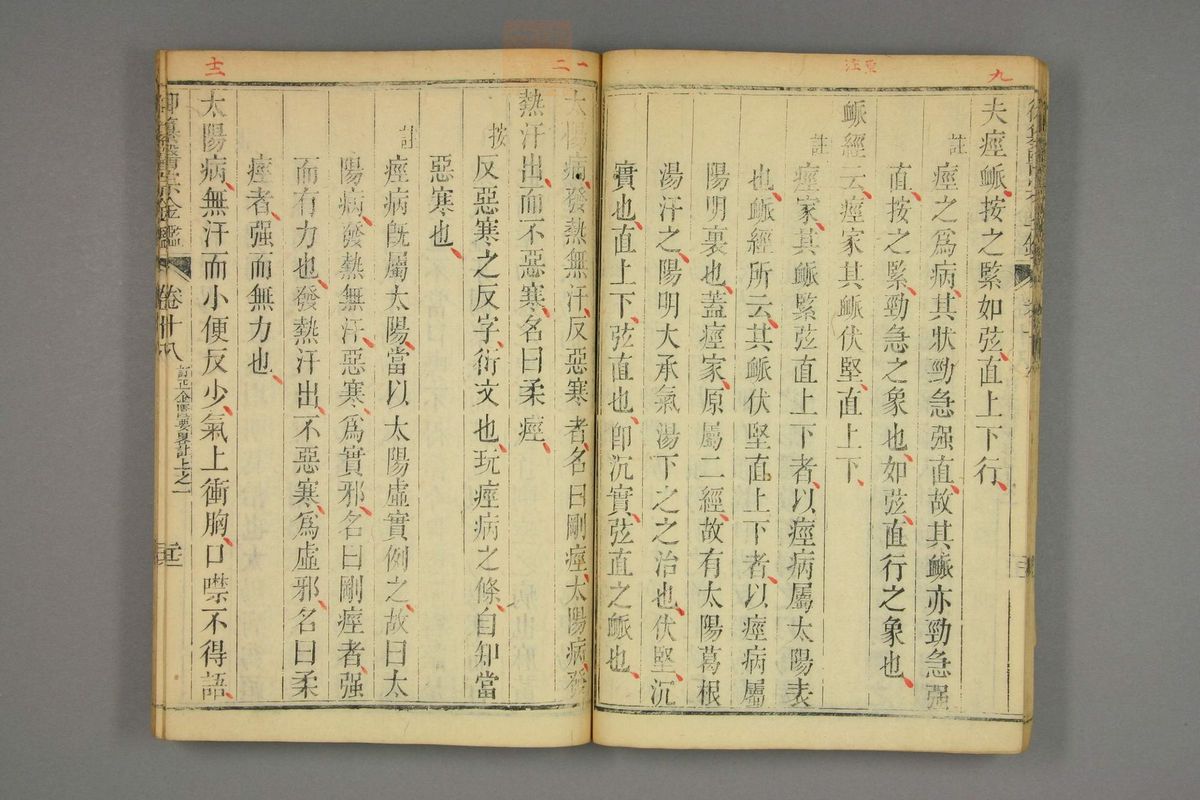 九
東
注
夫痙脈按之緊如弦直上下行
註
痙之爲病其狀勁急强直故其脈亦勁急强
直按之緊勁急之象也如弦直行之象也
脈經云痙家其脈伏堅直上下
註
痙家其脈緊弦直上下者以痙病屬太陽表
也脈經所云其脈伏堅直上下者以痙病屬
陽明裏也蓋痙家原屬二經故有太陽葛根
湯汗之陽明大承氣湯下之之治也伏堅沉
實也直上下弦直也卽沉實弦直之脈也
一
二
太陽病發熱無汗反惡寒者名曰剛痙太陽病發
熱汗出而不惡寒名曰柔痙
按
反惡寒之反字衍文也玩痙病之條自知當
惡寒也
註
痙病旣屬太陽當以太陽虛實例之故曰太
陽病發熱無汗惡寒爲實邪名曰剛痙者强
而有力也發熱汗出不惡寒爲虛邪名曰柔
痙者强而無力也
太陽病無汗而小便反少氣上衝胸口噤不得語
御纂醫宗金鑑
卷十八
訂正金匱要畧註上之一
十二